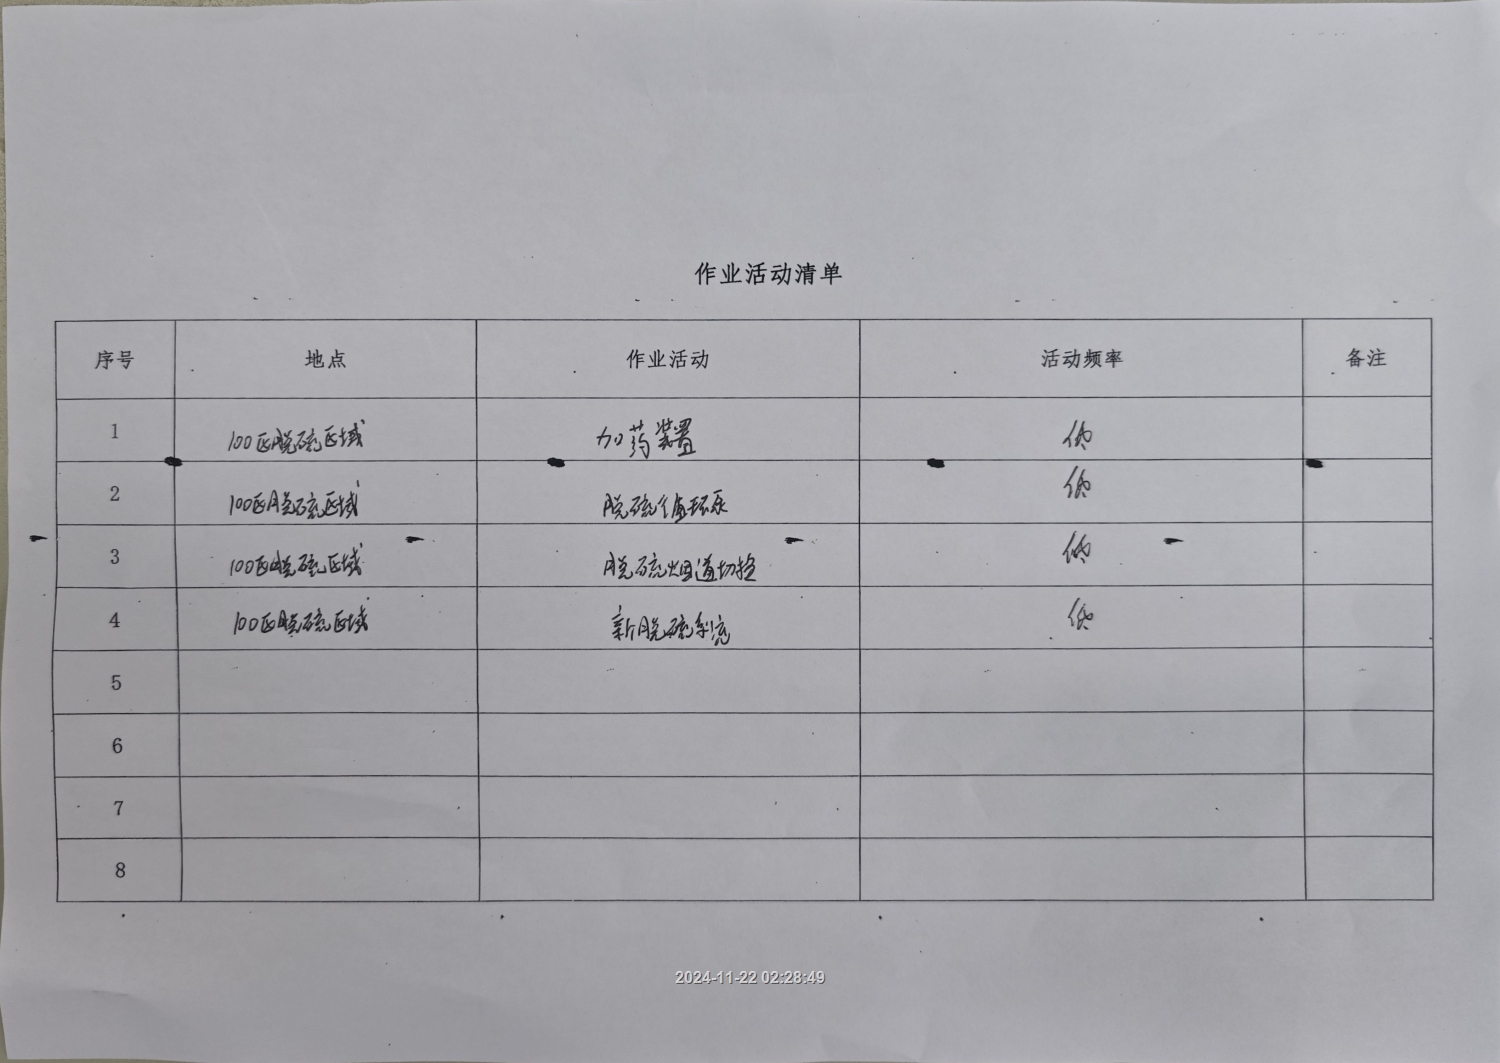 作业活动清单
序号 地点 作业活动 活动频率 备注
1 100区脱硫区域 加药装置 低
2 100区脱硫区域 脱硫循环泵 低
3 100区脱硫区域 脱硫烟道切换 低
4 100区脱硫区域 新脱硫系统 低
5
6
7
8
2024-11-22 02:28:49